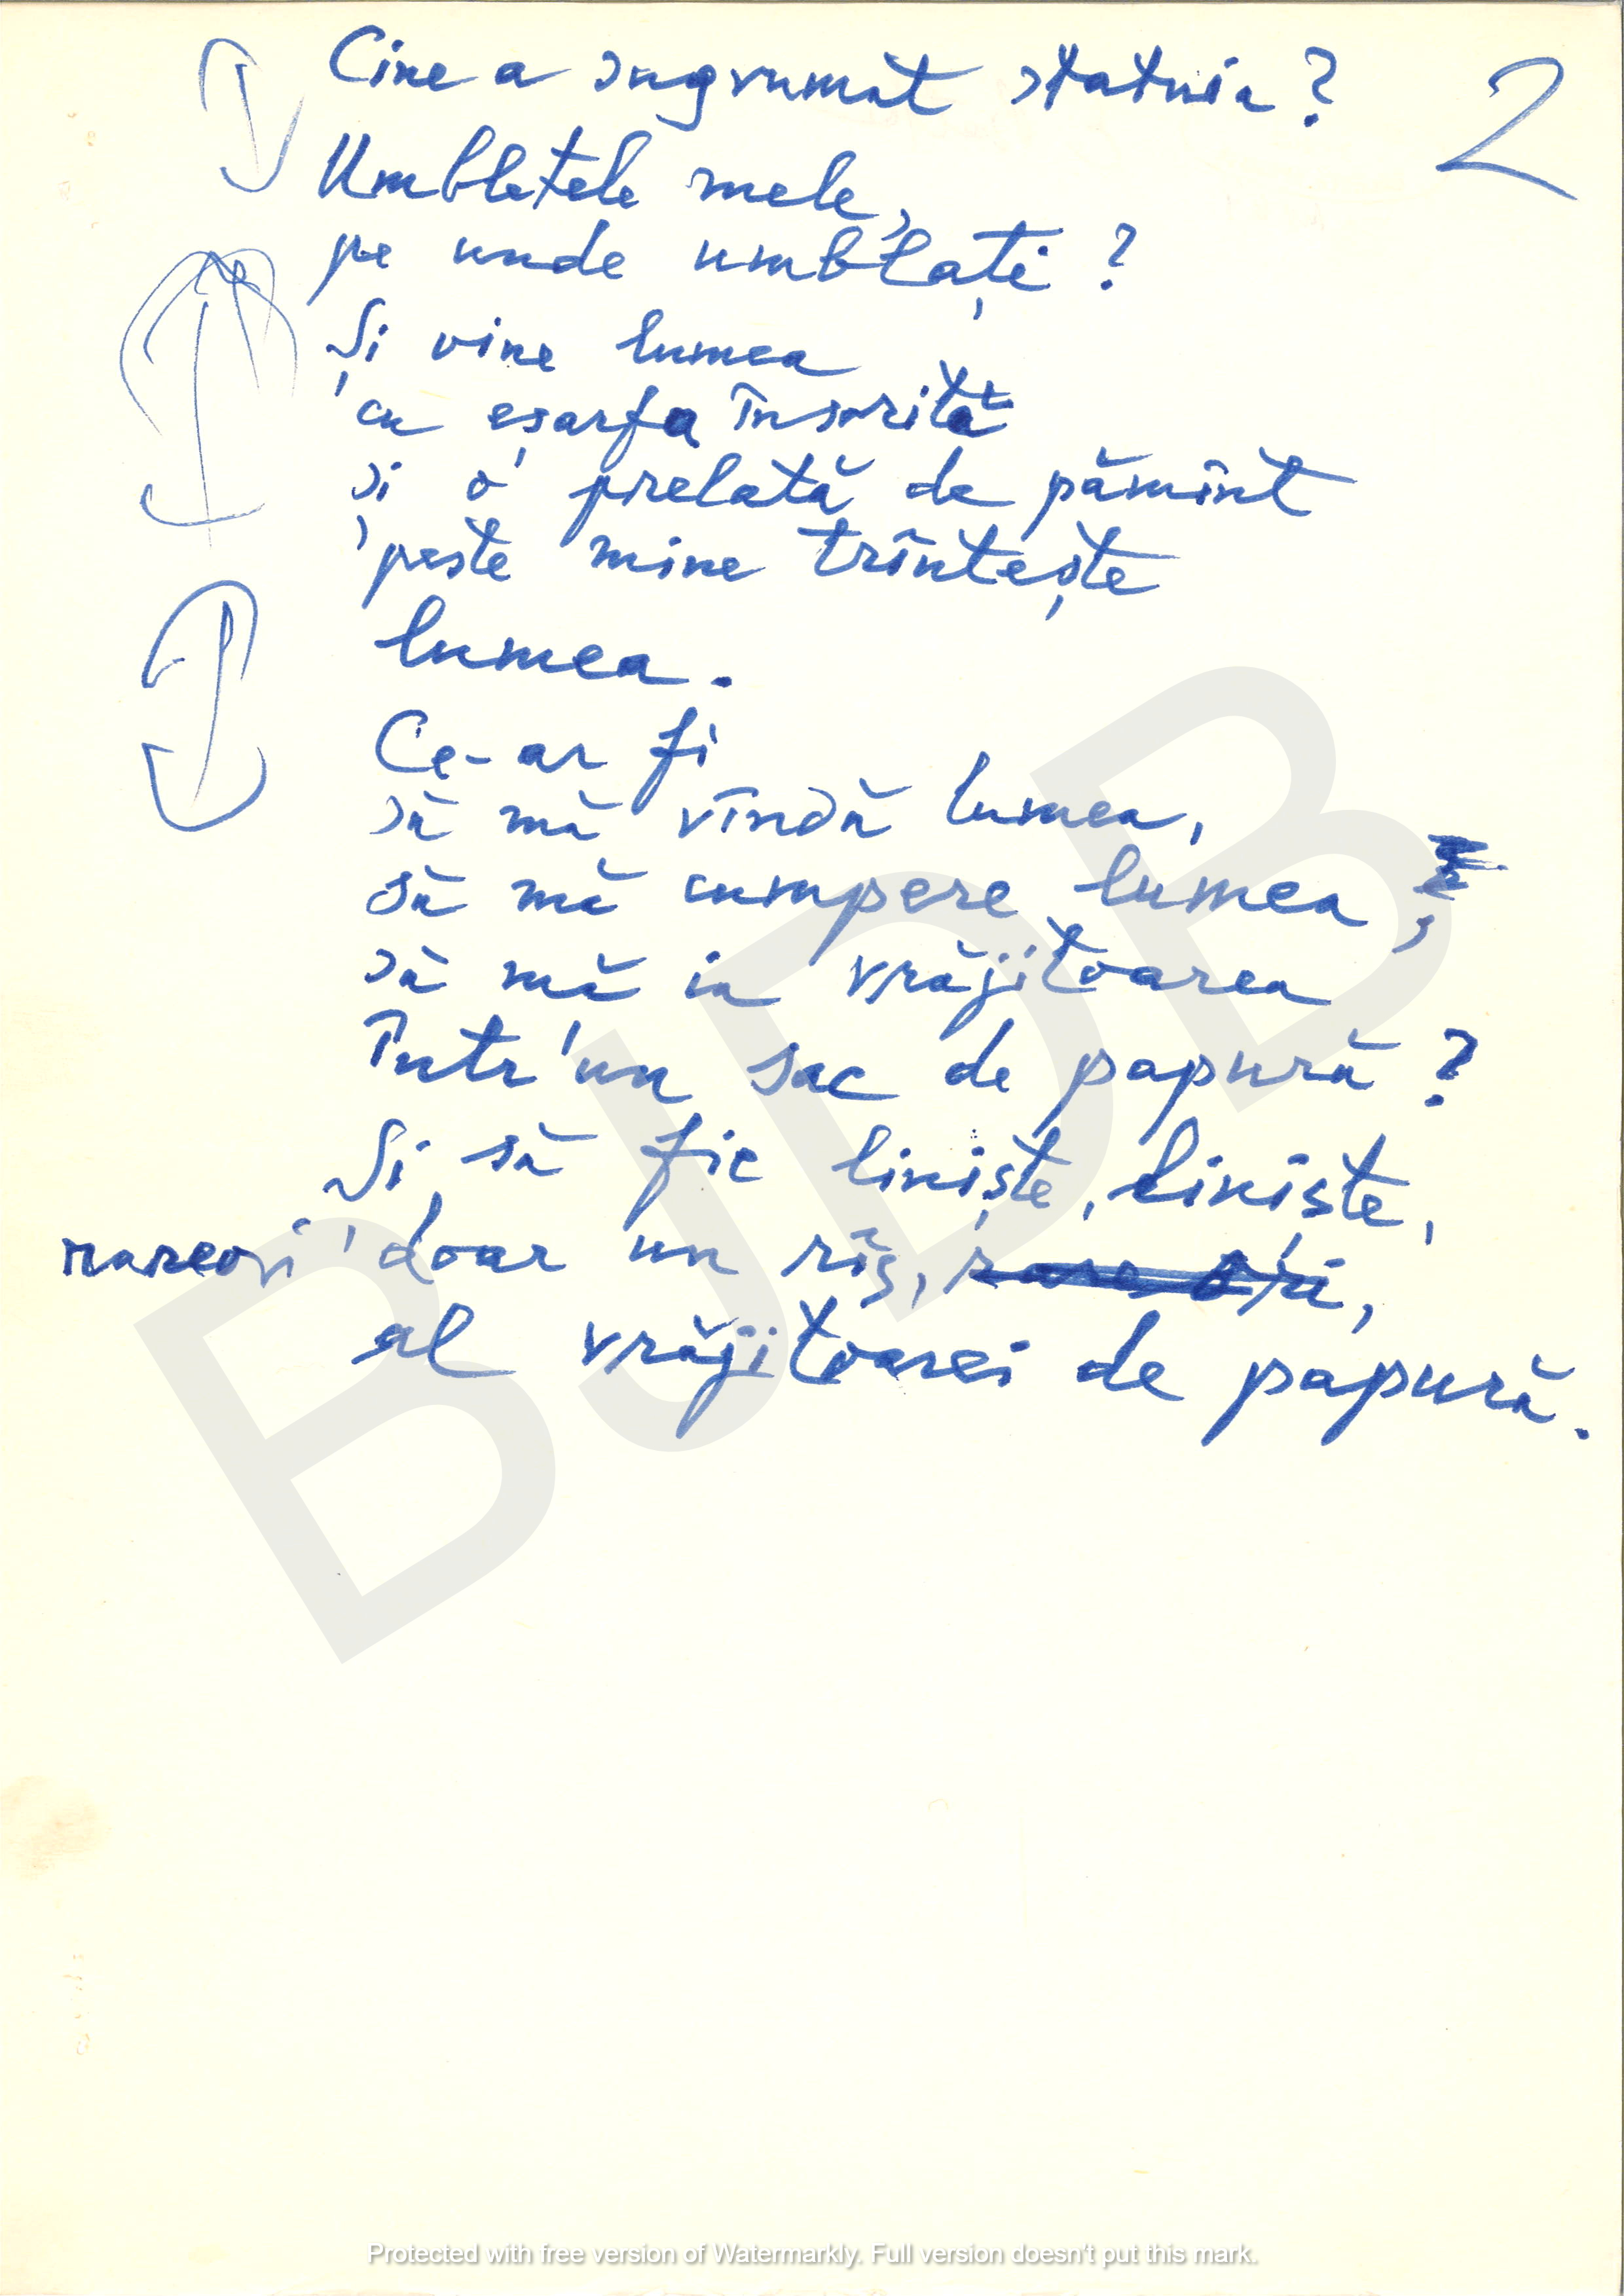 2
Cine a sugrumat statuia ?
Umbletele mele,
pe unde umblați ?
Și vine lumea
cu eșarfa însorită
și o prelată de pămînt
peste mine trîntește
lumea.
Ce-ar fi
să mă vîndă lumea,
să mă cumpere lumea,
să mă ia vrăjitoarea
într'un sac de papură ?
Și să fie liniște, liniște,
rareori doar un rîs, rare ori,
al vrăjitoarei de papură.
BJDB
Protected with free version of Watermarkly. Full version doesn't put this mark.